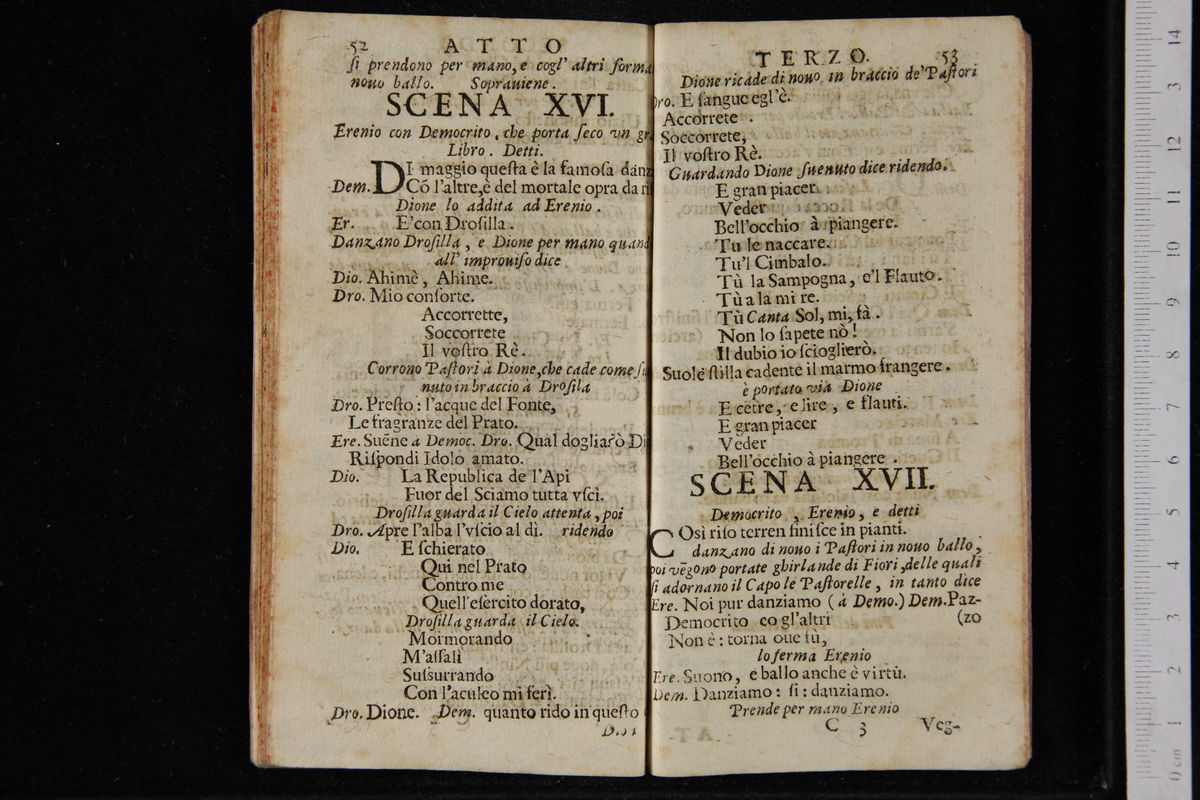 52 ATTO
ſi prendono per mano, e cogl' altri forma
nouo ballo. Soprauiene.
SCENA XVI.
Erenio con Democrito, che porta ſeco vn
Libro. Detti.
Dem. DI maggio queſta è la famoſa
Cõ l'altre, è del mortale opra da
Dione lo addita ad Erenio.
Er. E' con Droſilla.
Danzano Droſilla, e Dione per mano
all' improuiſo dice
Dio. Ahimè, Ahime.
Dro. Mio conſorte.
Accorrette,
Soccorrete
Il voſtro Rè.
Corrono Paſtori à Dione, che cade come
nuto in braccio à Droſila
Dro. Preſto: l'acque del Fonte,
Le fragranze del Prato.
Ere. Suēne a Democ. Dro. Qual doglia?ò
Riſpondi Idolo amato.
Dio. La Republica de l'Api
Fuor del Sciamo tutta vſcì.
Droſilla guarda il Cielo attenta, poi
Dro. Apre l'alba l'vſcio al dì. ridendo
Dio. E ſchierato
Qui nel Prato
Contro me
Quell'eſercito dorato,
Droſilla guarda il Cielo.
Mormorando
M'aſſalì
Suſſurrando
Con l'aculeo mi ferì.
Dro. Dione. Dem. quanto rido in queſto
TERZO. 53
Dione ricade di nouo in braccio de' Paſtori
Dro. E ſangue egl'è.
Accorrete.
Soccorrete,
Il voſtro Rè.
Guardando Dione ſuenuto dice ridendo.
E gran piacer
Veder
Bell'occhio à piangere.
Tu le naccare.
Tu'l Cimbalo.
Tù la Sampogna, e'l Flauto.
Tù a la mi re.
Tù Canta Sol, mi, fà.
Non lo ſapete nò!
Il dubio io ſcioglierò.
Suole ſtilla cadente il marmo frangere.
è portato via Dione
E cetre, e lire, e flauti.
E gran piacer
Veder
Bell'occhio à piangere.
SCENA XVII.
Democrito, Erenio, e detti
COsì riſo terren finiſce in pianti.
danzano di nouo i Paſtori in nouo ballo,
poi vēgono portate ghirlande di Fiori, delle quali
ſi adornano il Capo le Paſtorelle, in tanto dice
Ere. Noi pur danziamo (à Demo.) Dem. Paz-
Democrito co gl'altri (zo
Non è: torna oue fù,
lo ferma Erenio
Ere. Suono, e ballo anche è virtù.
Dem. Danziamo: ſi: danziamo.
Prende per mano Erenio
C 3 Veg-
14
13
12
11
10
9
8
7
6
5
4
3
2
1
0 cm